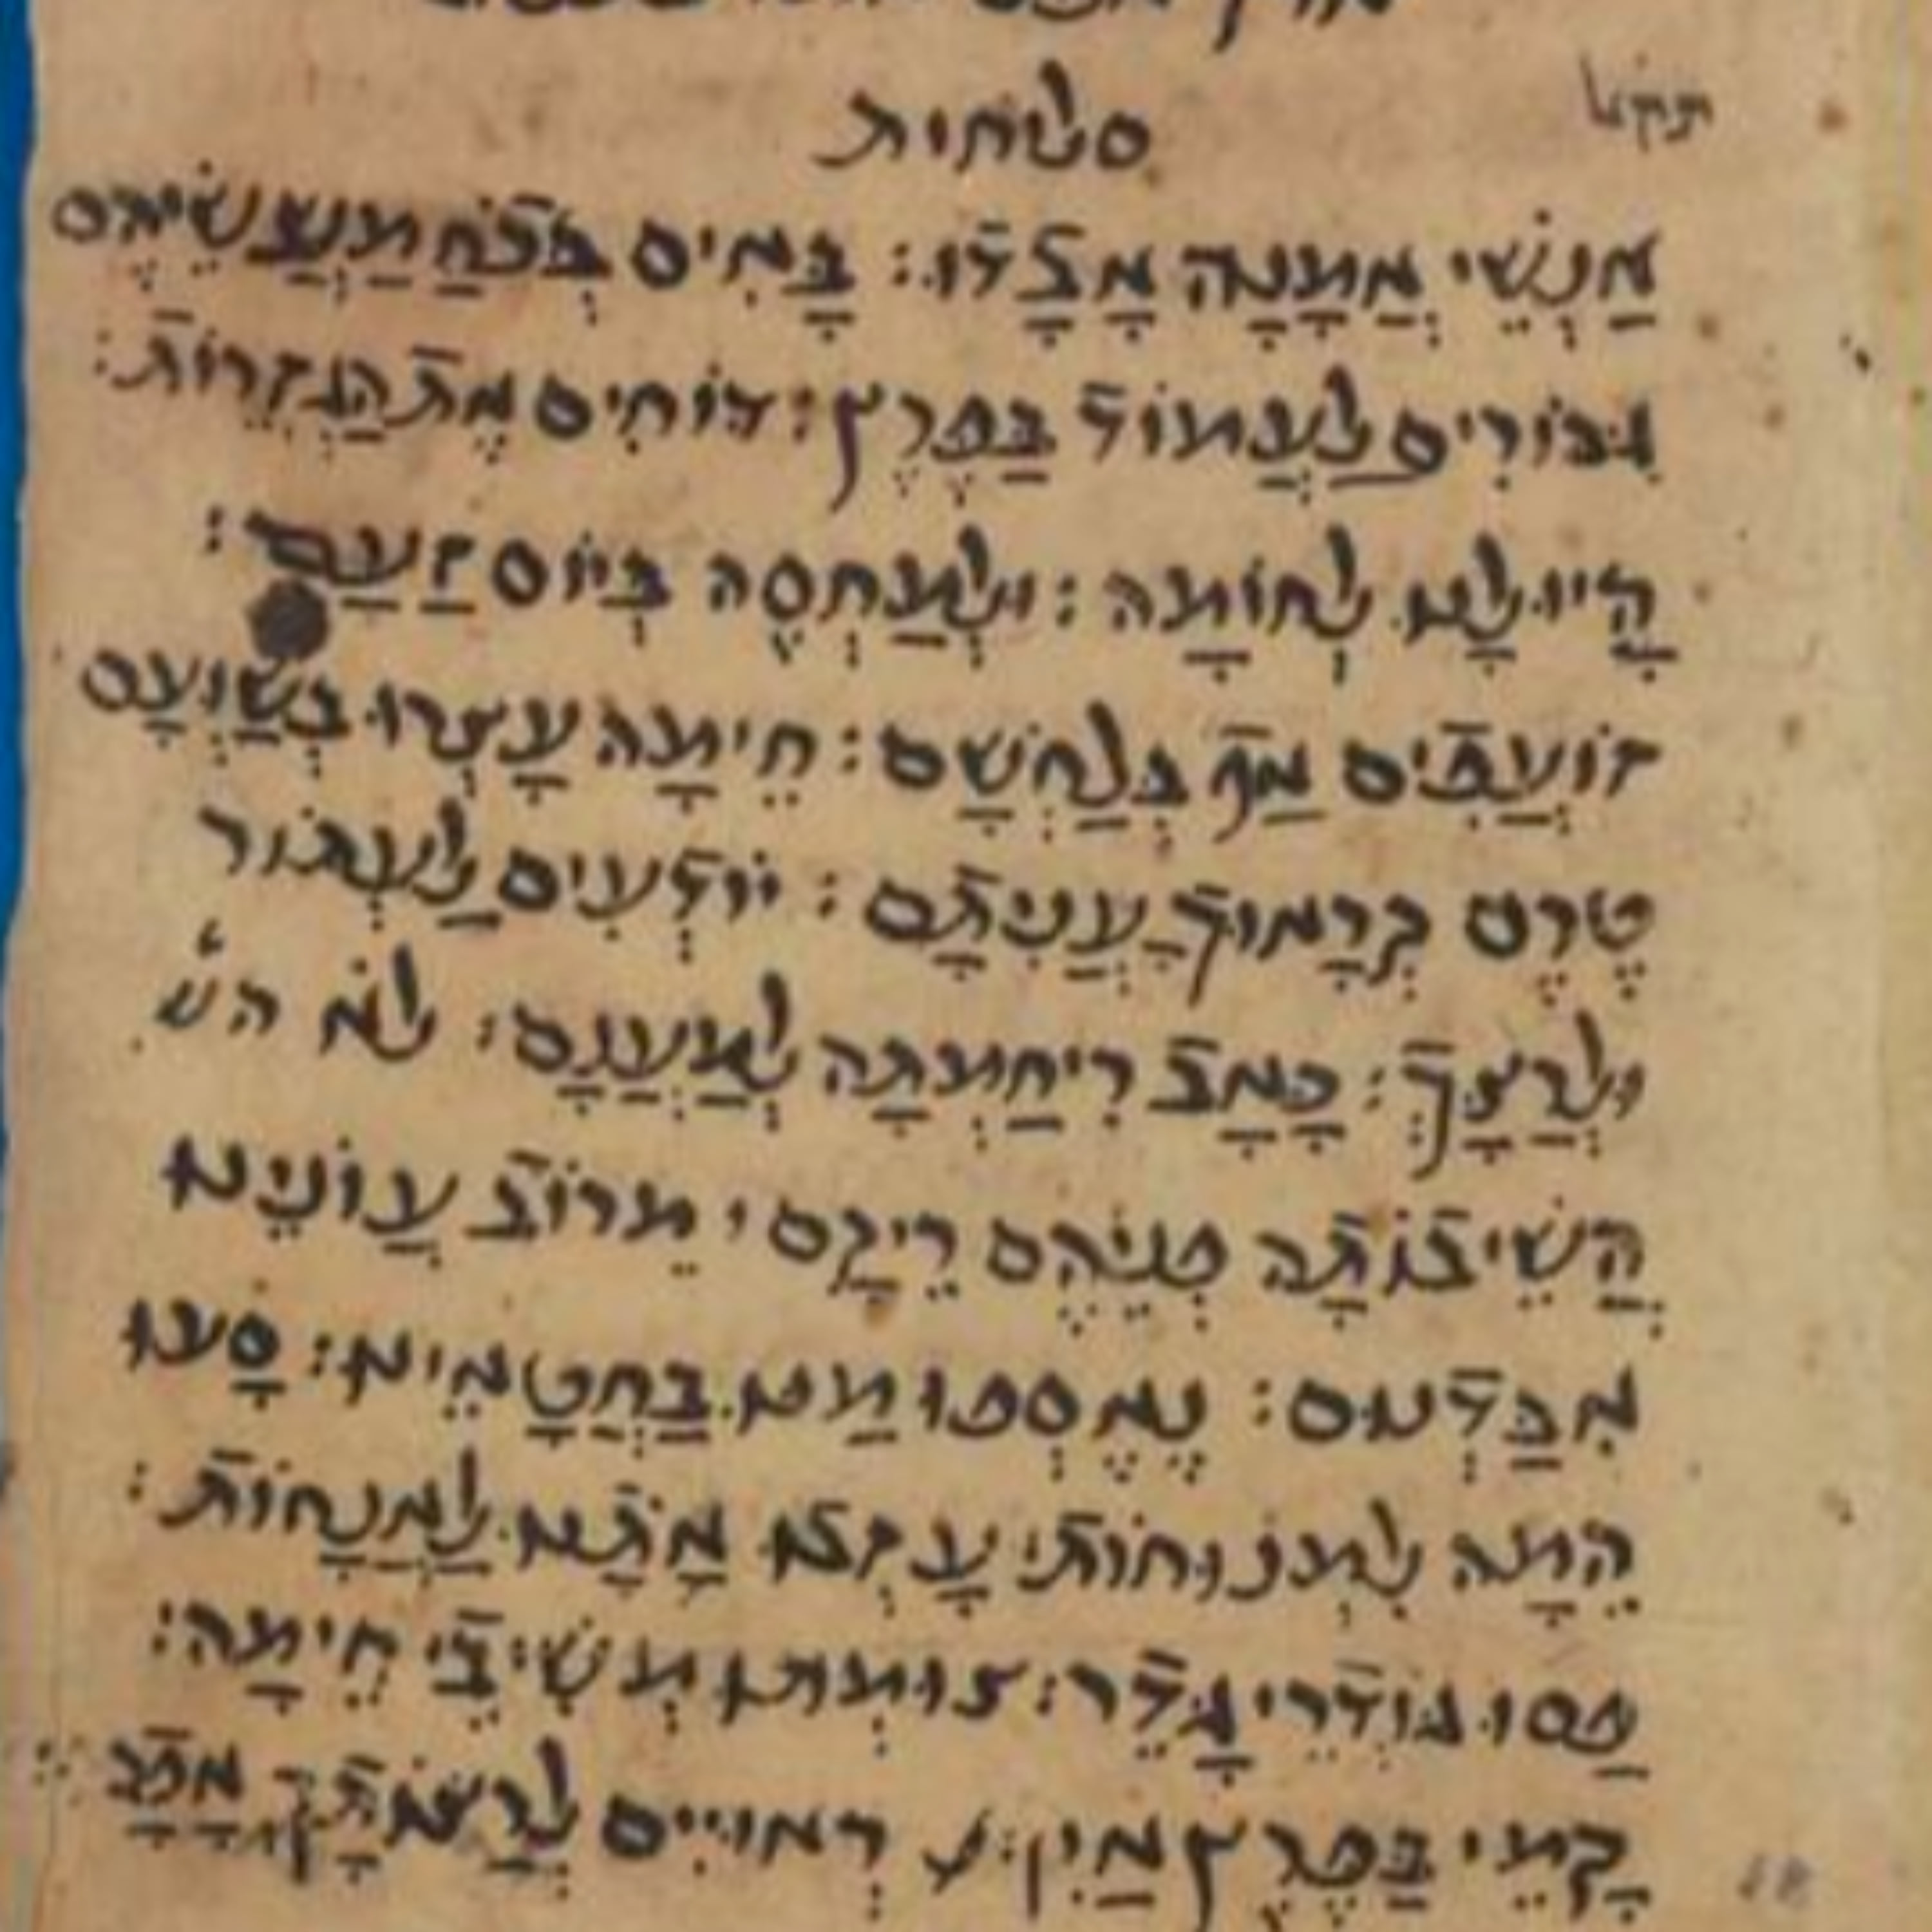 סלחות
אַנְשֵׁי אֲמָנָה אָבָדוּ: בָּאִים בְּכֹחַ מַעֲשֵׂיהֶם
גִּבּוֹרִים לַעֲמוֹד בַּפֶּרֶץ: דּוֹחִים אֶת הַגְּזֵרוֹת:
הָיוּ לָנוּ לְחוֹמָה: וּלְמַחְסֶה בְּיוֹם זַעַם:
זוֹעֲכִים אַף בְּלַחֲשָׁם: חֵימָה עָצְרוּ בְּשַׁוְּעָם
טֶרֶם קְרָאוּךָ עֲנִיתָם: יוֹדְעִים לַעְתּוֹר
וּלְרַצָּךְ: כְּאָב רִיחַמְתָּה לְמַעֲנָם: לֹא הש
הֲשֵׁיבוֹתָה פְּנֵיהֶם רֵיקָם: מֵרוֹב עֲוֹנֵינוּ
אִבַּדְנוּם: נֶאֶסְפוּ מַנּוּ בַּחֲטָאֵינוּ: סָעוּ
הֵמָּה לִמְנוּחוֹת: עָזְבוּ אוֹתָנוּ לַאֲנָחוֹת:
פַּסּוּ גּוֹדְרֵי גָדֵר: צוּמְּתוּ מְשִׁיבֵי חֵימָה:
קָמֵי בַּפֶּרֶץ אַיִן רְאוּיִים לְרַצֹּתְךָ אָפָסוּ